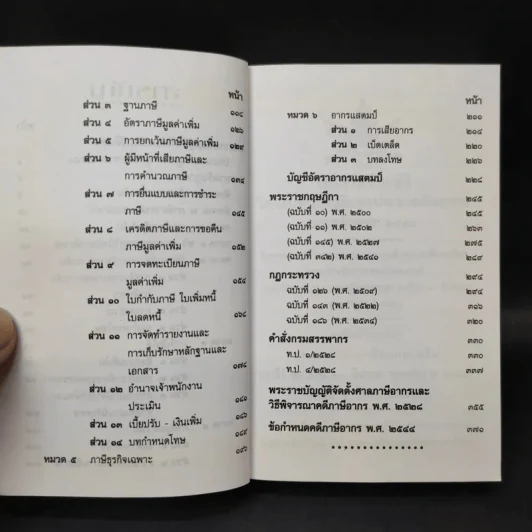 หน้า
ส่วน ๓ ฐานภาษี ๑๑๘
ส่วน ๔ อัตราภาษีมูลค่าเพิ่ม ๑๒๖
ส่วน ๕ การยกเว้นภาษีมูลค่าเพิ่ม ๑๒๙
ส่วน ๖ ผู้มีหน้าที่เสียภาษีและ
การคำนวณภาษี ๑๓๔
ส่วน ๗ การยื่นแบบและการชำระ
ภาษี ๑๔๕
ส่วน ๘ เครดิตภาษีและการขอคืน
ภาษีมูลค่าเพิ่ม ๑๕๒
ส่วน ๙ การจดทะเบียนภาษี
มูลค่าเพิ่ม ๑๕๔
ส่วน ๑๐ ใบกำกับภาษี ใบเพิ่มหนี้
ใบลดหนี้ ๑๖๘
ส่วน ๑๑ การจัดทำรายงานและ
การเก็บรักษาหลักฐานและ
เอกสาร ๑๗๘
ส่วน ๑๒ อำนาจเจ้าพนักงาน
ประเมิน
ส่วน ๑๓ เบี้ยปรับ - เงินเพิ่ม
ส่วน ๑๔ บทกำหนดโทษ
หมวด ๕ ภาษีธุรกิจเฉพาะ
หน้า
หมวด ๖ อากรแสตมป์ ๒๐๐
ส่วน ๑ การเสียอากร ๒๐๔
ส่วน ๒ เบ็ดเตล็ด ๒๒๐
ส่วน ๓ บทลงโทษ ๒๒๖
บัญชีอัตราอากรแสตมป์ ๒๒๘
พระราชกฤษฎีกา ๒๔๕
(ฉบับที่ ๑๐) พ.ศ. ๒๕๐๐ ๒๔๕
(ฉบับที่ ๑๐) พ.ศ. ๒๕๐๒ ๒๖๓
(ฉบับที่ ๑๔๕) พ.ศ. ๒๕๒๗ ๒๗๕
(ฉบับที่ ๓๔๒) พ.ศ. ๒๕๔๑
กฎกระทรวง ๒๙๔
ฉบับที่ ๑๒๖ (พ.ศ. ๒๕๐๙) ๒๙๔
ฉบับที่ ๑๔๓ (พ.ศ. ๒๕๒๒) ๓๑๖
ฉบับที่ ๑๘๖ (พ.ศ. ๒๕๓๔) ๓๒๐
คำสั่งกรมสรรพากร ๓๓๐
ท.ป. ๑/๒๕๒๘ ๓๓๐
ท.ป. ๔/๒๕๒๘ ๓๓๗
พระราชบัญญัติจัดตั้งศาลภาษีอากรและ
วิธีพิจารณาคดีภาษีอากร พ.ศ. ๒๕๒๘ ๓๕๕
ข้อกำหนดคดีภาษีอากร พ.ศ. ๒๕๔๔ ๓๗๑